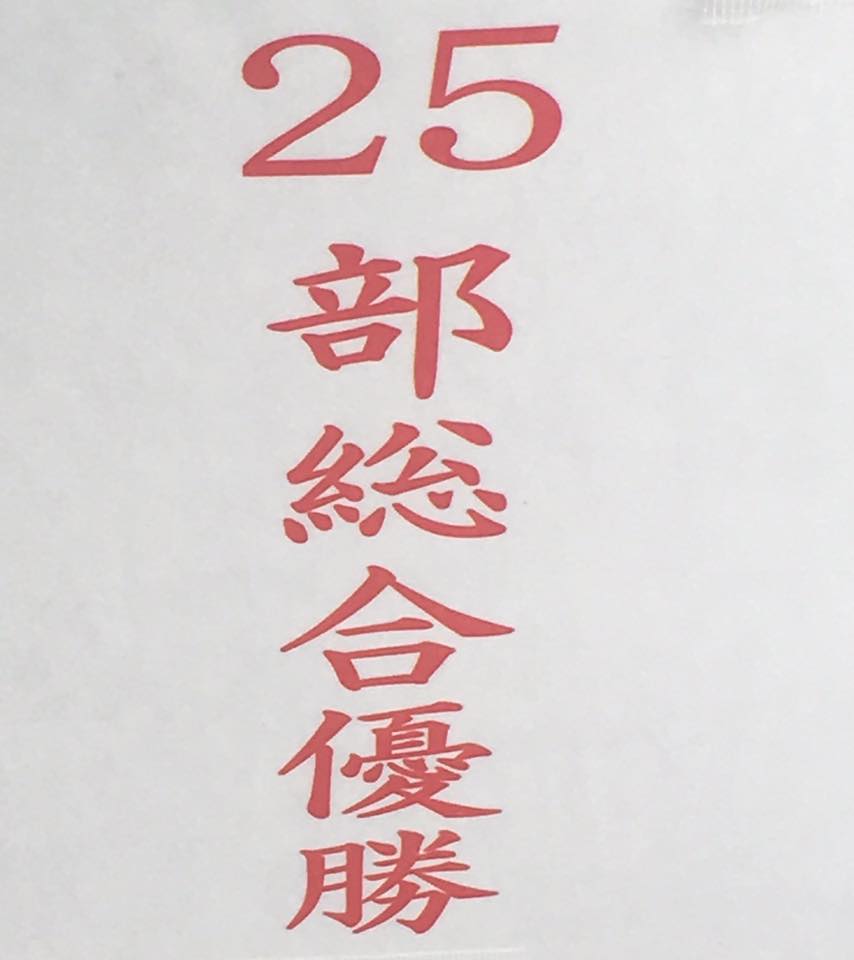 25部総合優勝